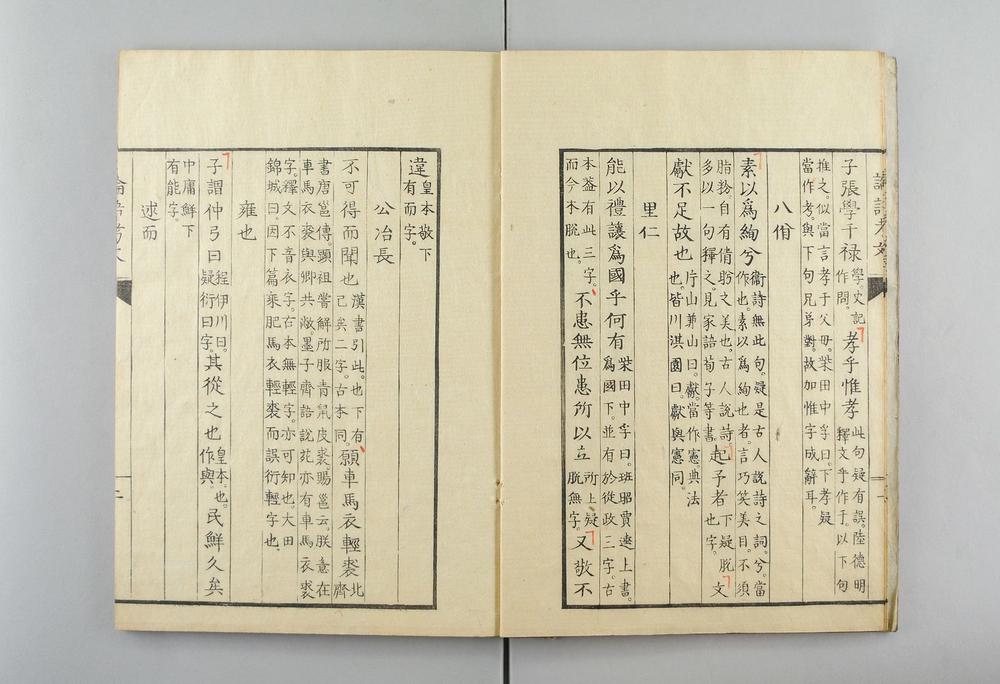 論語考文
子張學干祿學、史記作問。孝乎惟孝此句疑有誤。陸德明釋文乎作于。以下句
推之。似當言孝于父母。柴田中孚曰。下孝疑當作考。與下句兄弟對。故加惟字成辭耳。
八佾
素以爲絢兮衞詩無此句。疑是古人說詩之詞。兮。當作也。素以爲絢也者。言巧笑美目。不須
脂粉。自有倩盼之美也。古人說詩。多以一句釋之。見家語荀子等書。起予者下疑脱也字。文
獻不足故也片山兼山曰。獻。當作憲。典法也。皆川淇園曰。獻與憲同。
里仁
能以禮讓爲國乎何有柴田中孚曰。班昭賈逵上書。爲國下。並有於從政三字。古
本蓋有此三字。而今本脱也。不患無位患所以立所上疑脱無字。又敬不
違皇本敬下有而字。
公冶長
不可得而聞也漢書引此。也下有已矣二字。古本同。願車馬衣輕裘北齊
書唐邕傳。顯祖嘗解所服青鼠皮裘賜邕云。朕意在車馬衣裘與卿共敝。墨子齊語說苑亦有車馬衣裘
字。釋文不音衣字。古本無輕字。亦可知也。大田錦城曰。因下篇乘肥馬衣輕裘而誤衍輕字也。
雍也
子謂仲弓曰程伊川曰。疑衍曰字。其從之也皇本。也作與。民鮮久矣
中庸鮮下有能字。
述而
論語考文
二